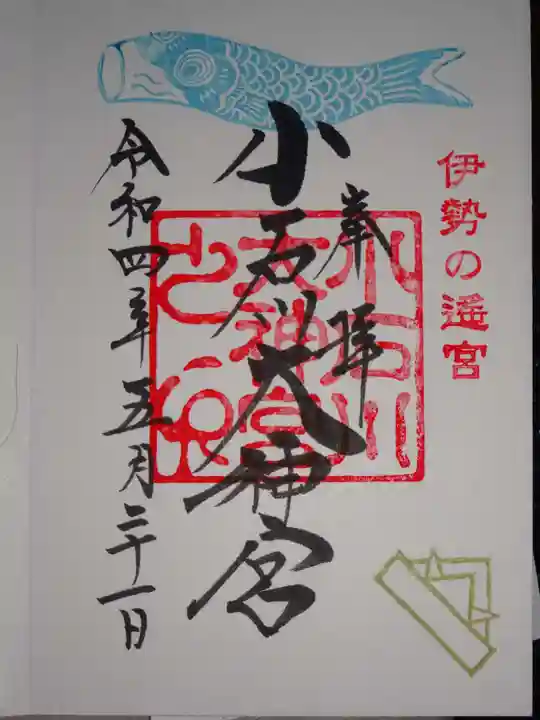 伊勢の遥宮
奉拝
小石川大神宮
小石川
大神宮
令和四年五月二十一日